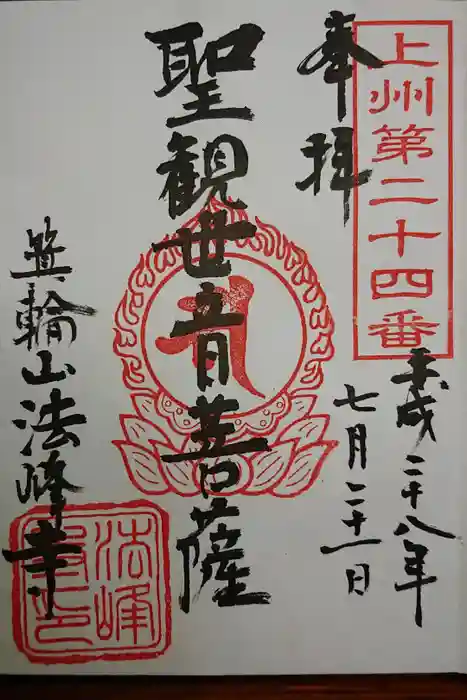 上州第二十四番
平成二十八年
七月二十一日
奉拝
聖観世音菩薩
箕輪山法峰寺
法峰